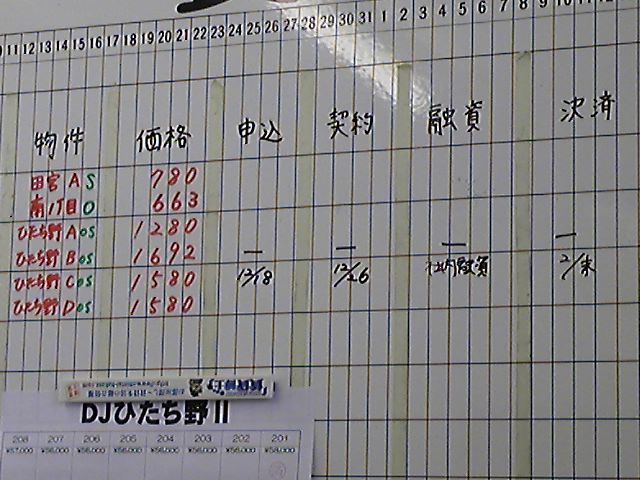 11 12 13 14 15 16 17 18 19 20 21 22 23 24 25 26 27 28 29 30 31 1 2 3 4 5 6 7 8 9 10 11 12
物件 価格 申込 契約 融資 決済
田宮 A S 780
南1丁目 O 663
ひたち野 A OS 1280
ひたち野 B OS 1692 12/18 12/26 社内融資 2/末
ひたち野 C OS 1580
ひたち野 D OS 1580
DJひたち野II
208 207 206 205 204 203 202 201
¥57,000 ¥56,000 ¥56,000 ¥56,000 ¥56,000 ¥56,000 ¥56,000 ¥58,000